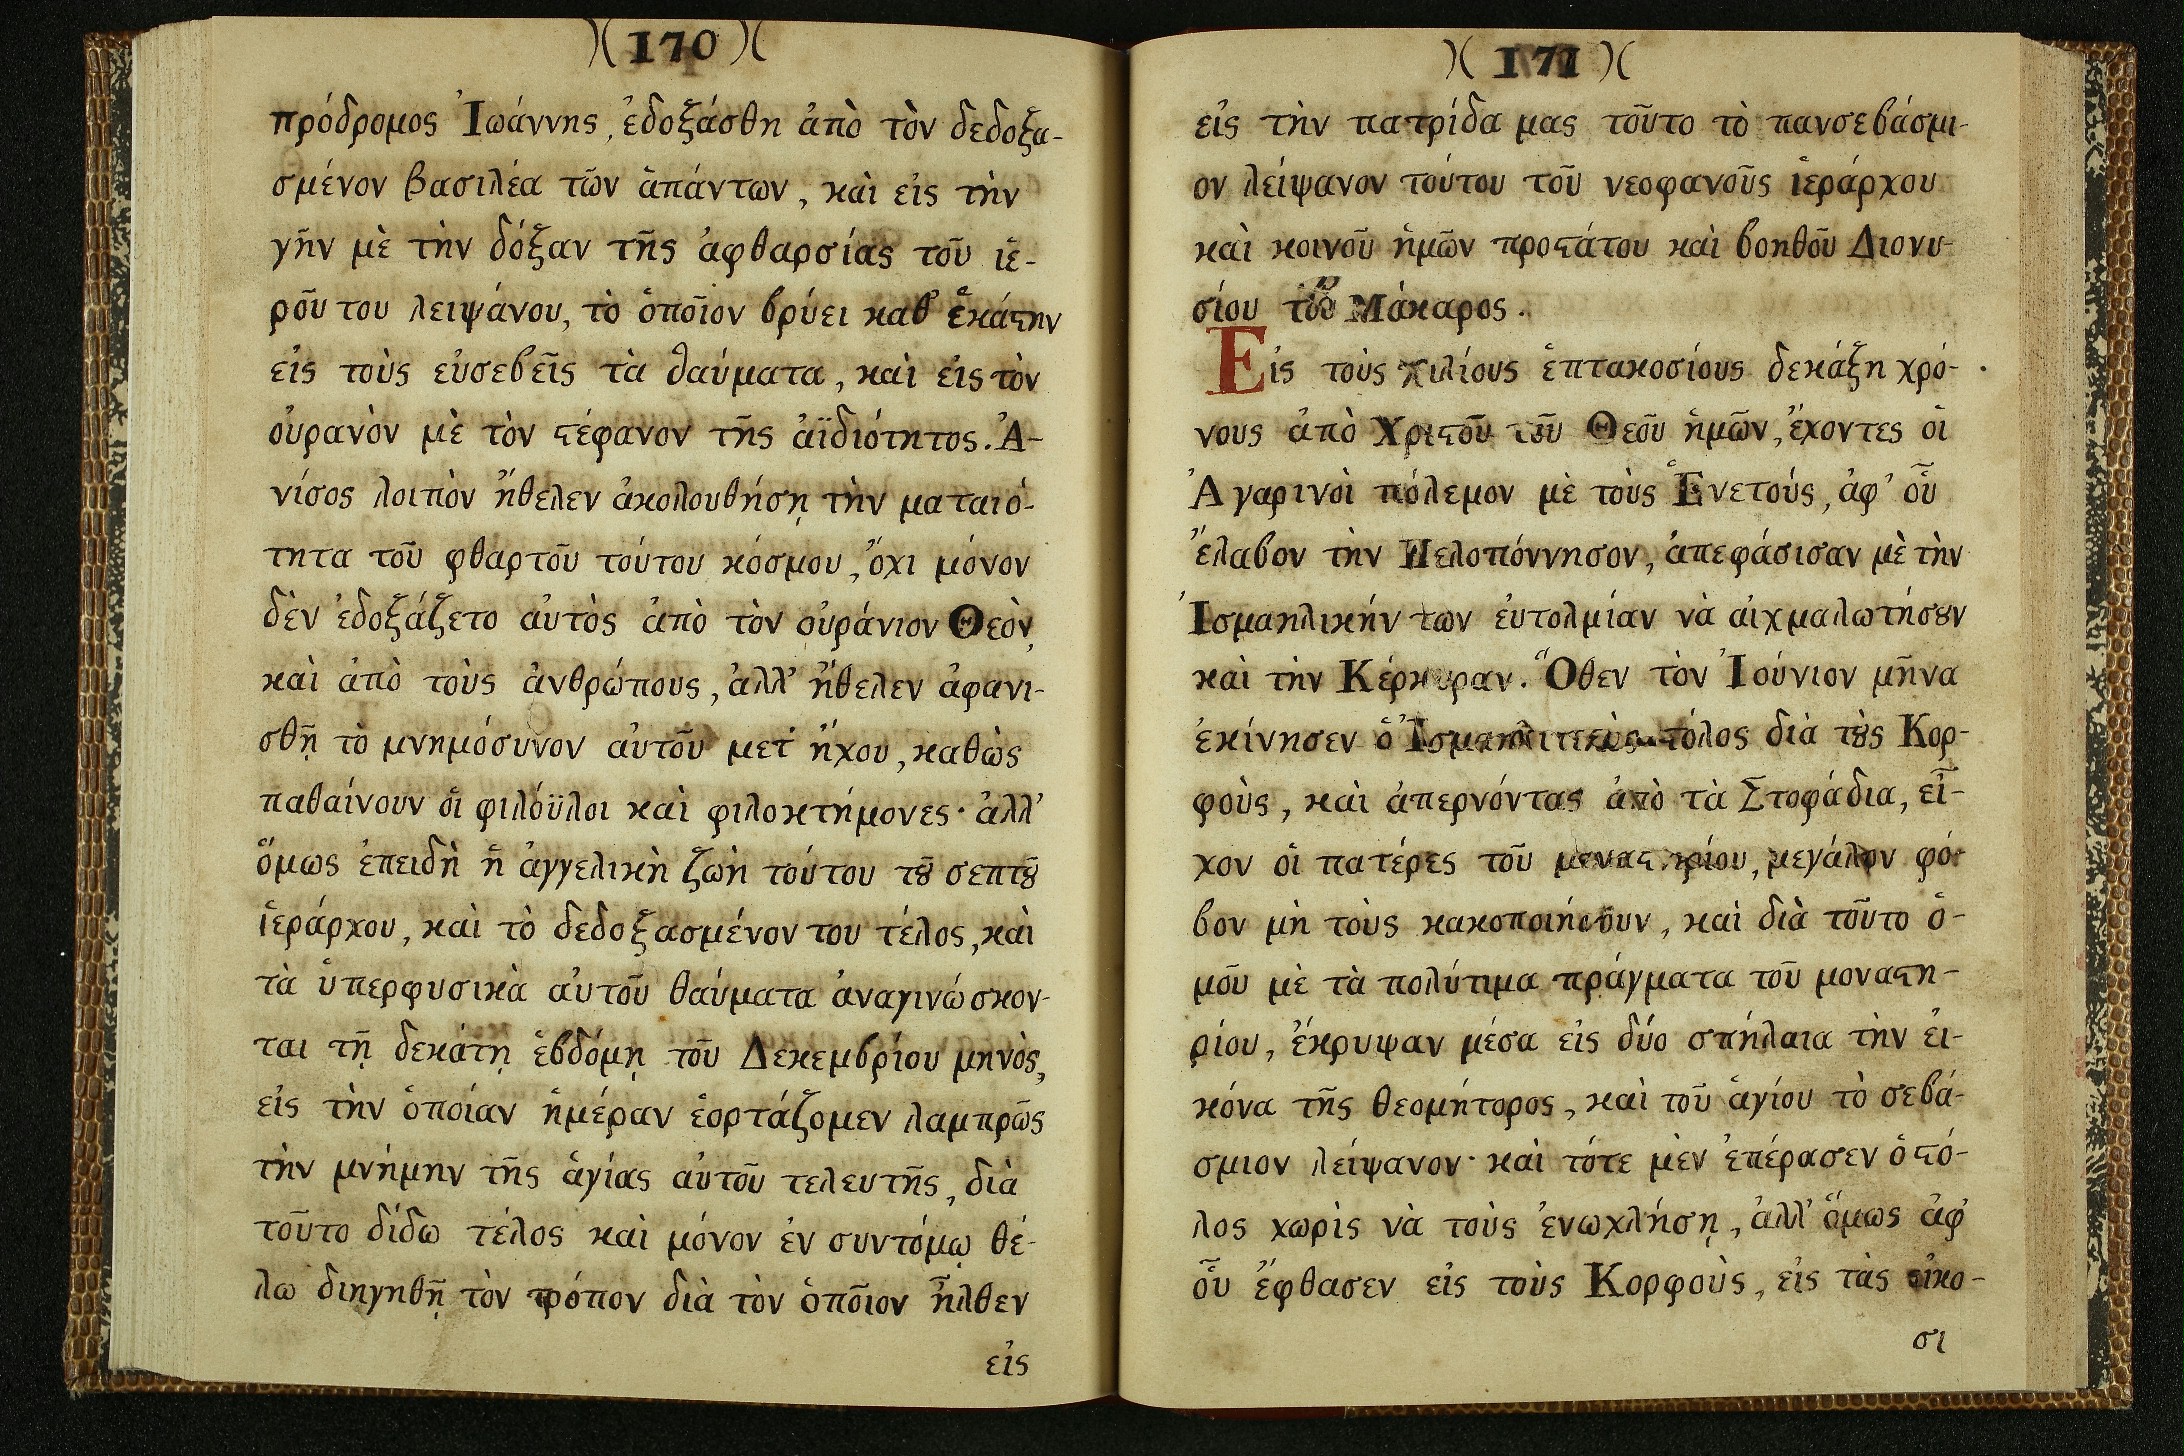 )( 170 )(
πρόδρομος Ἰωάννης, ἐδοξάσθη ἀπὸ τὸν δεδοξα-
σμένον βασιλέα τῶν ἁπάντων, καὶ εἰς τὴν
γῆν μὲ τὴν δόξαν τῆς ἀφθαρσίας τοῦ ἱε-
ροῦ του λειψάνου, τὸ ὁποῖον βρύει καθ' ἑκάϛην
εἰς τοὺς εὐσεβεῖς τὰ θαύματα, καὶ εἰς τὸν
οὐρανὸν μὲ τὸν ϛέφανον τῆς ἀϊδιότητος. Ἀ-
νίσος λοιπὸν ἤθελεν ἀκολουθήσῃ τὴν ματαιό-
τητα τοῦ φθαρτοῦ τούτου κόσμου, ὄχι μόνον
δὲν ἐδοξάζετο αὐτὸς ἀπὸ τὸν οὐράνιον Θεὸν,
καὶ ἀπὸ τοὺς ἀνθρώπους, ἀλλ' ἤθελεν ἀφανι-
σθῇ τὸ μνημόσυνον αὐτοῦ μετ' ἤχου, καθὼς
παθαίνουν οἱ φιλόϋλοι καὶ φιλοκτήμονες· ἀλλ'
ὅμως ἐπειδὴ ἡ ἀγγελικὴ ζωὴ τούτου τȣ͂ σεπτȣ͂
ἱεράρχου, καὶ τὸ δεδοξασμένον του τέλος, καὶ
τὰ ὑπερφυσικὰ αὐτοῦ θαύματα ἀναγινώσκον-
ται τῇ δεκάτῃ ἑβδόμῃ τοῦ Δεκεμβρίου μηνὸς,
εἰς τὴν ὁποίαν ἡμέραν ἑορτάζομεν λαμπρῶς
τὴν μνήμην τῆς ἁγίας αὐτοῦ τελευτῆς, διὰ
τοῦτο δίδω τέλος καὶ μόνον ἐν συντόμῳ θέ-
λω διηγηθῇ τὸν τρόπον διὰ τὸν ὁποῖον ἦλθεν
εἰς
)( 171 )(
εἰς τὴν πατρίδα μας τοῦτο τὸ πανσεβάσμι-
ον λείψανον τούτου τοῦ νεοφανοῦς ἱεράρχου
καὶ κοινοῦ ἡμῶν προϛάτου καὶ βοηθοῦ Διονυ-
σίου τοῦ Μάκαρος.
Εἰς τοὺς χιλίους ἑπτακοσίους δεκάξη χρό-
νους ἀπὸ Χριϛοῦ τοῦ Θεοῦ ἡμῶν, ἔχοντες οἱ
Ἀγαρινοὶ πόλεμον μὲ τοὺς Ἑνετούς, ἀφ' οὗ
ἔλαβον τὴν Πελοπόννησον, ἀπεφάσισαν μὲ τὴν
Ἰσμαηλικήν των εὐτολμίαν νὰ αἰχμαλωτήσȣν
καὶ τὴν Κέρκυραν. Ὅθεν τὸν Ἰούνιον μῆνα
ἐκίνησεν ὁ ϛόλος διὰ τȣ̀ς Κορ-
φοὺς, καὶ ἀπερνόντας ἀπὸ τὰ Στοφάδια, εἶ-
χον οἱ πατέρες τοῦ μοναϛηρίου, μεγάλον φό-
βον μὴ τοὺς κακοποιήσουν, καὶ διὰ τοῦτο ὁ-
μοῦ μὲ τὰ πολύτιμα πράγματα τοῦ μοναϛη-
ρίου, ἔκρυψαν μέσα εἰς δύο σπήλαια τὴν εἰ-
κόνα τῆς θεομήτορος, καὶ τοῦ ἁγίου τὸ σεβά-
σμιον λείψανον· καὶ τότε μὲν ἐπέρασεν ὁ ϛό-
λος χωρὶς νὰ τοὺς ἐνωχλήσῃ, ἀλλ' ὅμως ἀφ'
οὗ ἔφθασεν εἰς τοὺς Κορφοὺς, εἰς τὰς εἰκο-
σι